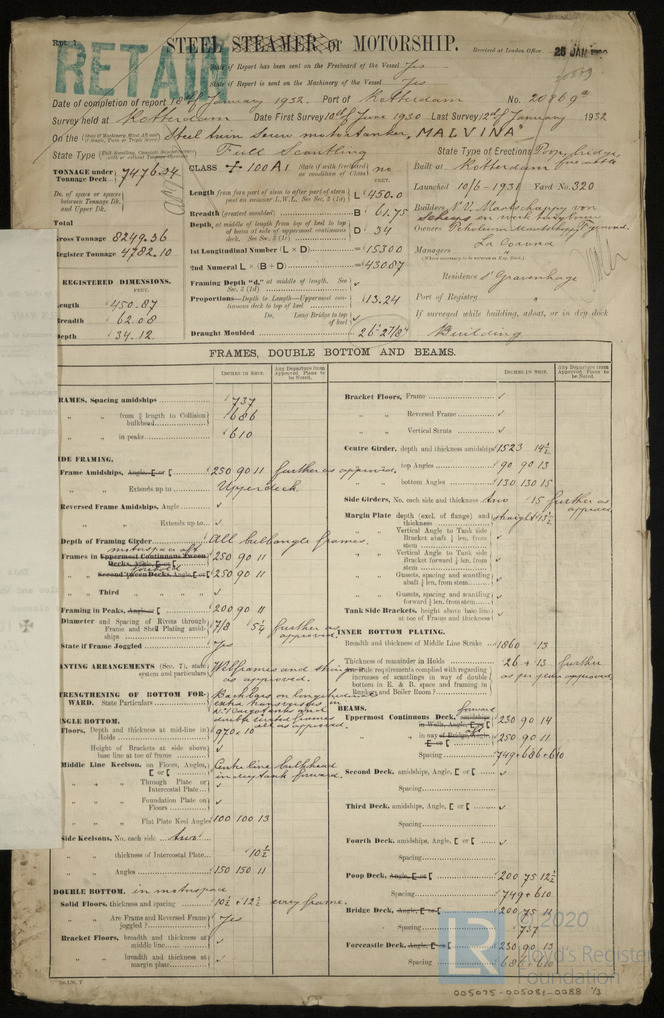 Rpt. 1.
RETAIN
STEEL STEAMER or MOTORSHIP.
Received at London Office
State if Report has been sent on the Freeboard of the Vessel Yes
State if Report is sent on the Machinery of the Vessel Yes
Date of completion of report 18th January 1932. Port of Rotterdam No. 20869a
Survey held at Rotterdam Date First Survey 10th June 1930 Last Survey 12th January 1932
On the Steel twin screw motortanker, "MALVINA"
State Type Full Scantling State Type of Erections Poop, bridge,
TONNAGE under Tonnage Deck 7476.34
CLASS + 100A1 State if with freeboard as condition of Class no
Built at Rotterdam
Launched 10/6 - 1931 Yard No. 320
Do. of space or spaces between Tonnage Dk. and Upper Dk.
Length from fore part of stem to after part of stern post on summer L.W.L. See Sec. 3 (1a) L 450.0
Breadth (greatest moulded) B 61.75
Depth, at middle of length from top of keel to top of beam at side of uppermost continuous deck. See Sec. 3 (1c) D 34
Total
Gross Tonnage 8249.36
Register Tonnage 4782.10
1st Longitudinal Number (L × D) = 15300
2nd Numeral L × (B + D) = 43087
Builders N.V. Maatschappij von Scheeps en werktuigbouw Fijenoord.
Owners Petroleum Maatschappij La Corona
Managers
Residence s'Gravenhage
Port of Registry "
If surveyed while building, afloat, or in dry dock
Building
REGISTERED DIMENSIONS.
FEET.
Length 450.87
Breadth 62.08
Depth 34.12
Framing Depth "d," at middle of length. See Sec. 3 (1d)
Proportions—Depth to Length—Uppermost continuous deck to top of keel 13.24
Do. Long Bridge to top of keel
Draught Moulded 26'-2 7/8"
FRAMES, DOUBLE BOTTOM AND BEAMS.
INCHES IN SHIP. Any Departure from Approved Plans to be Noted.
INCHES IN SHIP. Any Departure from Approved Plans to be Noted.
FRAMES, Spacing amidships 737
" " from 3/5 length to Collision bulkhead 686
" " in peaks 610
SIDE FRAMING.
Frame Amidships, Angle, E or [ 250 90 11 further as approved.
" " Extends up to Upperdeck.
Reversed Frame Amidships, Angle ✓
" " Extends up to ✓
Depth of Framing Girder All bulbangle frames.
Frames in Uppermost Continuous Tween Decks, Angle, E or [ motorspace aft 250 90 11
" " Second Tween Decks, Angle, E or [ 250 90 11
" " Third " " ✓
Framing in Peaks, Angle or [ 200 90 11
Diameter and Spacing of Rivets through Frame and Shell Plating amidships 7/8 5 1/4 further as approved.
State if Frame Joggled Yes
PANTING ARRANGEMENTS (Sec. 7), state system and particulars Webframes and stringers as approved.
STRENGTHENING OF BOTTOM FORWARD. State Particulars
SINGLE BOTTOM.
Floors, Depth and thickness at mid-line in Holds 970 × 10
Height of Brackets at side above base line at toe of frame ✓
Middle Line Keelson, on Floors, Angles, E or [ Centre line bulkhead in drytank forward.
" " Through Plate or Intercostal Plate ✓
" " Foundation Plate on Floors ✓
" " Flat Plate Keel Angles 100 100 13
Side Keelsons, No. each side Two
" " thickness of Intercostal Plate 10 1/2
" " Angles 150 150 11
DOUBLE BOTTOM. in motorspace
Solid Floors, thickness and spacing 10 1/2 + 12 1/2 every frame.
" " Are Frame and Reversed Frame joggled? Yes
Bracket Floors, breadth and thickness at middle line ✓
" " breadth and thickness at margin plate ✓
Bracket Floors, Frame ✓
" " Reversed Frame ✓
" " Vertical Struts ✓
Centre Girder, depth and thickness amidships 1523 14 1/2
" " top Angles 90 90 13
" " bottom Angles 130 130 15
Side Girders, No. each side and thickness two 15 further as approved
Margin Plate depth (excl. of flange) and thickness straight 13 1/2
" " Vertical Angle to Tank side Bracket abaft 1/4 len. from stem ✓
" " Vertical Angle to Tank side Bracket forward 1/4 len. from stem ✓
" " Gussets, spacing and scantling abaft 1/4 len. from stem ✓
" " Gussets, spacing and scantling forward 1/4 len. from stem ✓
Tank Side Brackets, height above base line at toe of Frame and thickness ✓
INNER BOTTOM PLATING.
Breadth and thickness of Middle Line Strake 1860 13
Thickness of remainder in Holds 26 + 13 further as per plan approved
BEAMS.
Uppermost Continuous Deck, amidships forward 230 90 14
" " in way of Bridge, Angle, E or [ aft 250 90 11
Spacing 749 + 686 + 610
Second Deck, amidships, Angle, E or [ ✓
Spacing
Third Deck, amidships, Angle, E or [ ✓
Spacing
Fourth Deck, amidships, Angle, E or [ ✓
Spacing
Poop Deck, Angle, E or [ 200 75 12 1/2
Spacing 749 + 610
Bridge Deck, Angle, E or [ 200 75
Spacing 737
Forecastle Deck, Angle, E or [ 230 90 13
Spacing 686 + 610
© 2020
Lloyd's Register
Foundation
LR
005075-005081-0088 1/3